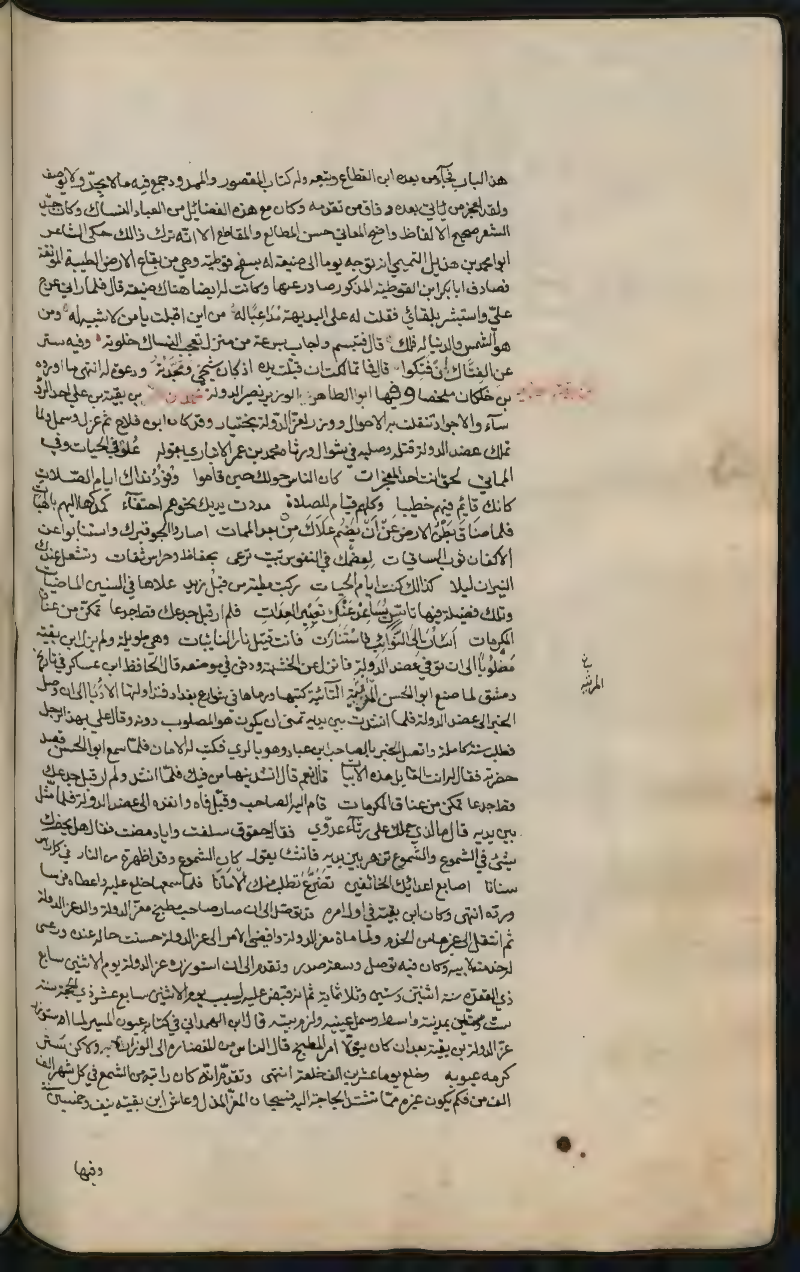 هذا الباب فجآء من بعده ابن القطاع وتبعه وله كتاب المقصور والممدود جمع فيه مالا يحدّ ولا يوصف
ولقد اعجز من ياتي بعده وفاق من تقدمه وكان مع هذه الفضائل من العباد النساك وكان جيّد
الشعر صحيح الالفاظ واضح المعاني حسن المطالع والمقاطع الا انّه ترك ذالك حكى الشاعر
ابو محمد بن هذيل التميمي انه توجه يوما الى ضيعة له بسفح قرطبة وهي من بقاع الارض الطيبة المونقة
فصادف ابا بكر ابن القوطية المذكور صادر عنها وكانت له ايضا هناك ضيعة قال فلما راني عرج
عليّ واستبشر بلقائي فقلت له على البديهة مُدَاعِبًا له من اين اقبلت يا من لا شبيه له ومن
هو الشمس والدنيا له فلك قال فتبسم واجاب بسرعة من منزل تعجب النساك خلوته وفيه ستر
عن الفتّاك اِنْ فتكوا قال فما تمالكت ان قبلت يده اذ كان شيخي ومجدته ودعوة له انتهى ما اورده
بن خلكان ملخصا وفيها ابو الطاهر الوزير نصير الدولة محمد بن بقية بن علي احد الرؤ
سآء والاجواد تنقلت به الاحوال ووزر لعز الدولة بختيار وقد كان ابوه فلاح ثم عزل وسمل ولما
تملك عضد الدولة قتله وصلبه في شوال ورثاه محمد بن عمر الانباري بقوله علو في الحيات وفي
المماتي لحق انت احد المعجزات كان الناس حولك حين قاموا وفود نداك ايام الصلات
كانك قائم فيهم خطيبا وكلهم قيام للصلاة مددت يديك نحوهم احتفآء كمدهما اليهم بالهبات
فلما ضاق بطن الارض عن اَنْ يضم علاك من بعد الممات اصاروا الجو قبرك واستنابوا عن
الاكفان ثوب السافيات لعظمك في النفوس تبيت ترعى بحفاظ وحراس ثقات وتشعل عندك
النيران ليلا كذالك كنت ايام الحيات ركبت مطية من قبل زيد علاها في السنين الماضيات
وتلك فضيلة فيها تاسٍ يُباعد عنك تعيير العدات فلم ار قبل جذعك قط جذعا تمكن من عناق
المكرمات اسأت الى النوائب فاستثارت فانت قتيل ثار النائبات وهي طويلة ولم يزل ابن بقية
مصلوبا الى ان توفي عضد الدولة فانزل عن الخشبة ودفن في موضعه قال الحافظ ابن عساكر في تاريخ
دمشق لما صنع ابو الحسن المرثية التآئية كتبها ورماها في شوارع بغداد فتداولتها الادبا الى ان وصل
الخبر الى عضد الدولة فلما انشدت بين يديه تمنى ان يكون هو المصلوب دونه وقال علي بهذا الرجل
فطلب سنة كاملة واتصل الخبر بالصاحب ابن عباد وهو بالري فكتب له الامان فلمّا سمع ابو الحسن قصد
حضرته فقال له انت القايل هذه الابيات قال نعم قال انشدنيها من فيك فلمّا انشد ولم ار قبل جذعك
قط جذعا تمكن من عناق المكرمات قام اليه الصاحب وقبّل فاه وانفذه الى عضد الدولة فلما مثل
بين يديه قال ما الذي حملك على رثآء عدوّي فقال حقوق سلفت واياد مضت فقال هل يحضرك
شيئ في الشموع والشموع تزهر بين يديه فانشا يقول كان الشموع وقد اظهرت من النار في كل راس
سنانا اصابع اعدائك الخائفين تضرّع تطلب منك الامانا فلما سمعها خلع عليه واعطاه فرسا
وبدرة انتهى وكان ابن بقية في اول امره قد توصل الى ان صار صاحب مطبخ معز الدولة والد عز الدولة
ثم انتقل الى غيرها من الخدم ولما مات معز الدولة وافضى الامر الى عز الدولة حسنت حاله عنده ورعى
له خدمته لابيه وكان فيه توصل وسعة صدر وتقدم الى ان استوزره عز الدولة يوم الاثنين سابع
ذي القعدة سنة اثنتين وستين وثلاثماية ثم انه قبض عليه لسبب يوم الاثنين سابع عشر ذي الحجة سنة
ست وستين بمدينة واسط وسمل عينيه ولزم بيته قال ابن الهمداني في كتاب عيون السير لما استوزر
عز الدولة بن بقية بعد ان كان يتولا امر المطبخ قال الناس من الغضارة الى الوزارة ولاكن ستر
كرمه عيوبه وخلع يوما عشرين الف خلعة انتهى وتقدم انه كان راتبه من الشمع في كل شهر الف
الف من فكم يكون غيره ممّا تشتد الحاجة اليه فسبحان المعز المذل وعاش ابن بقية نيف وخمسين سنة
وفيها
المرثية